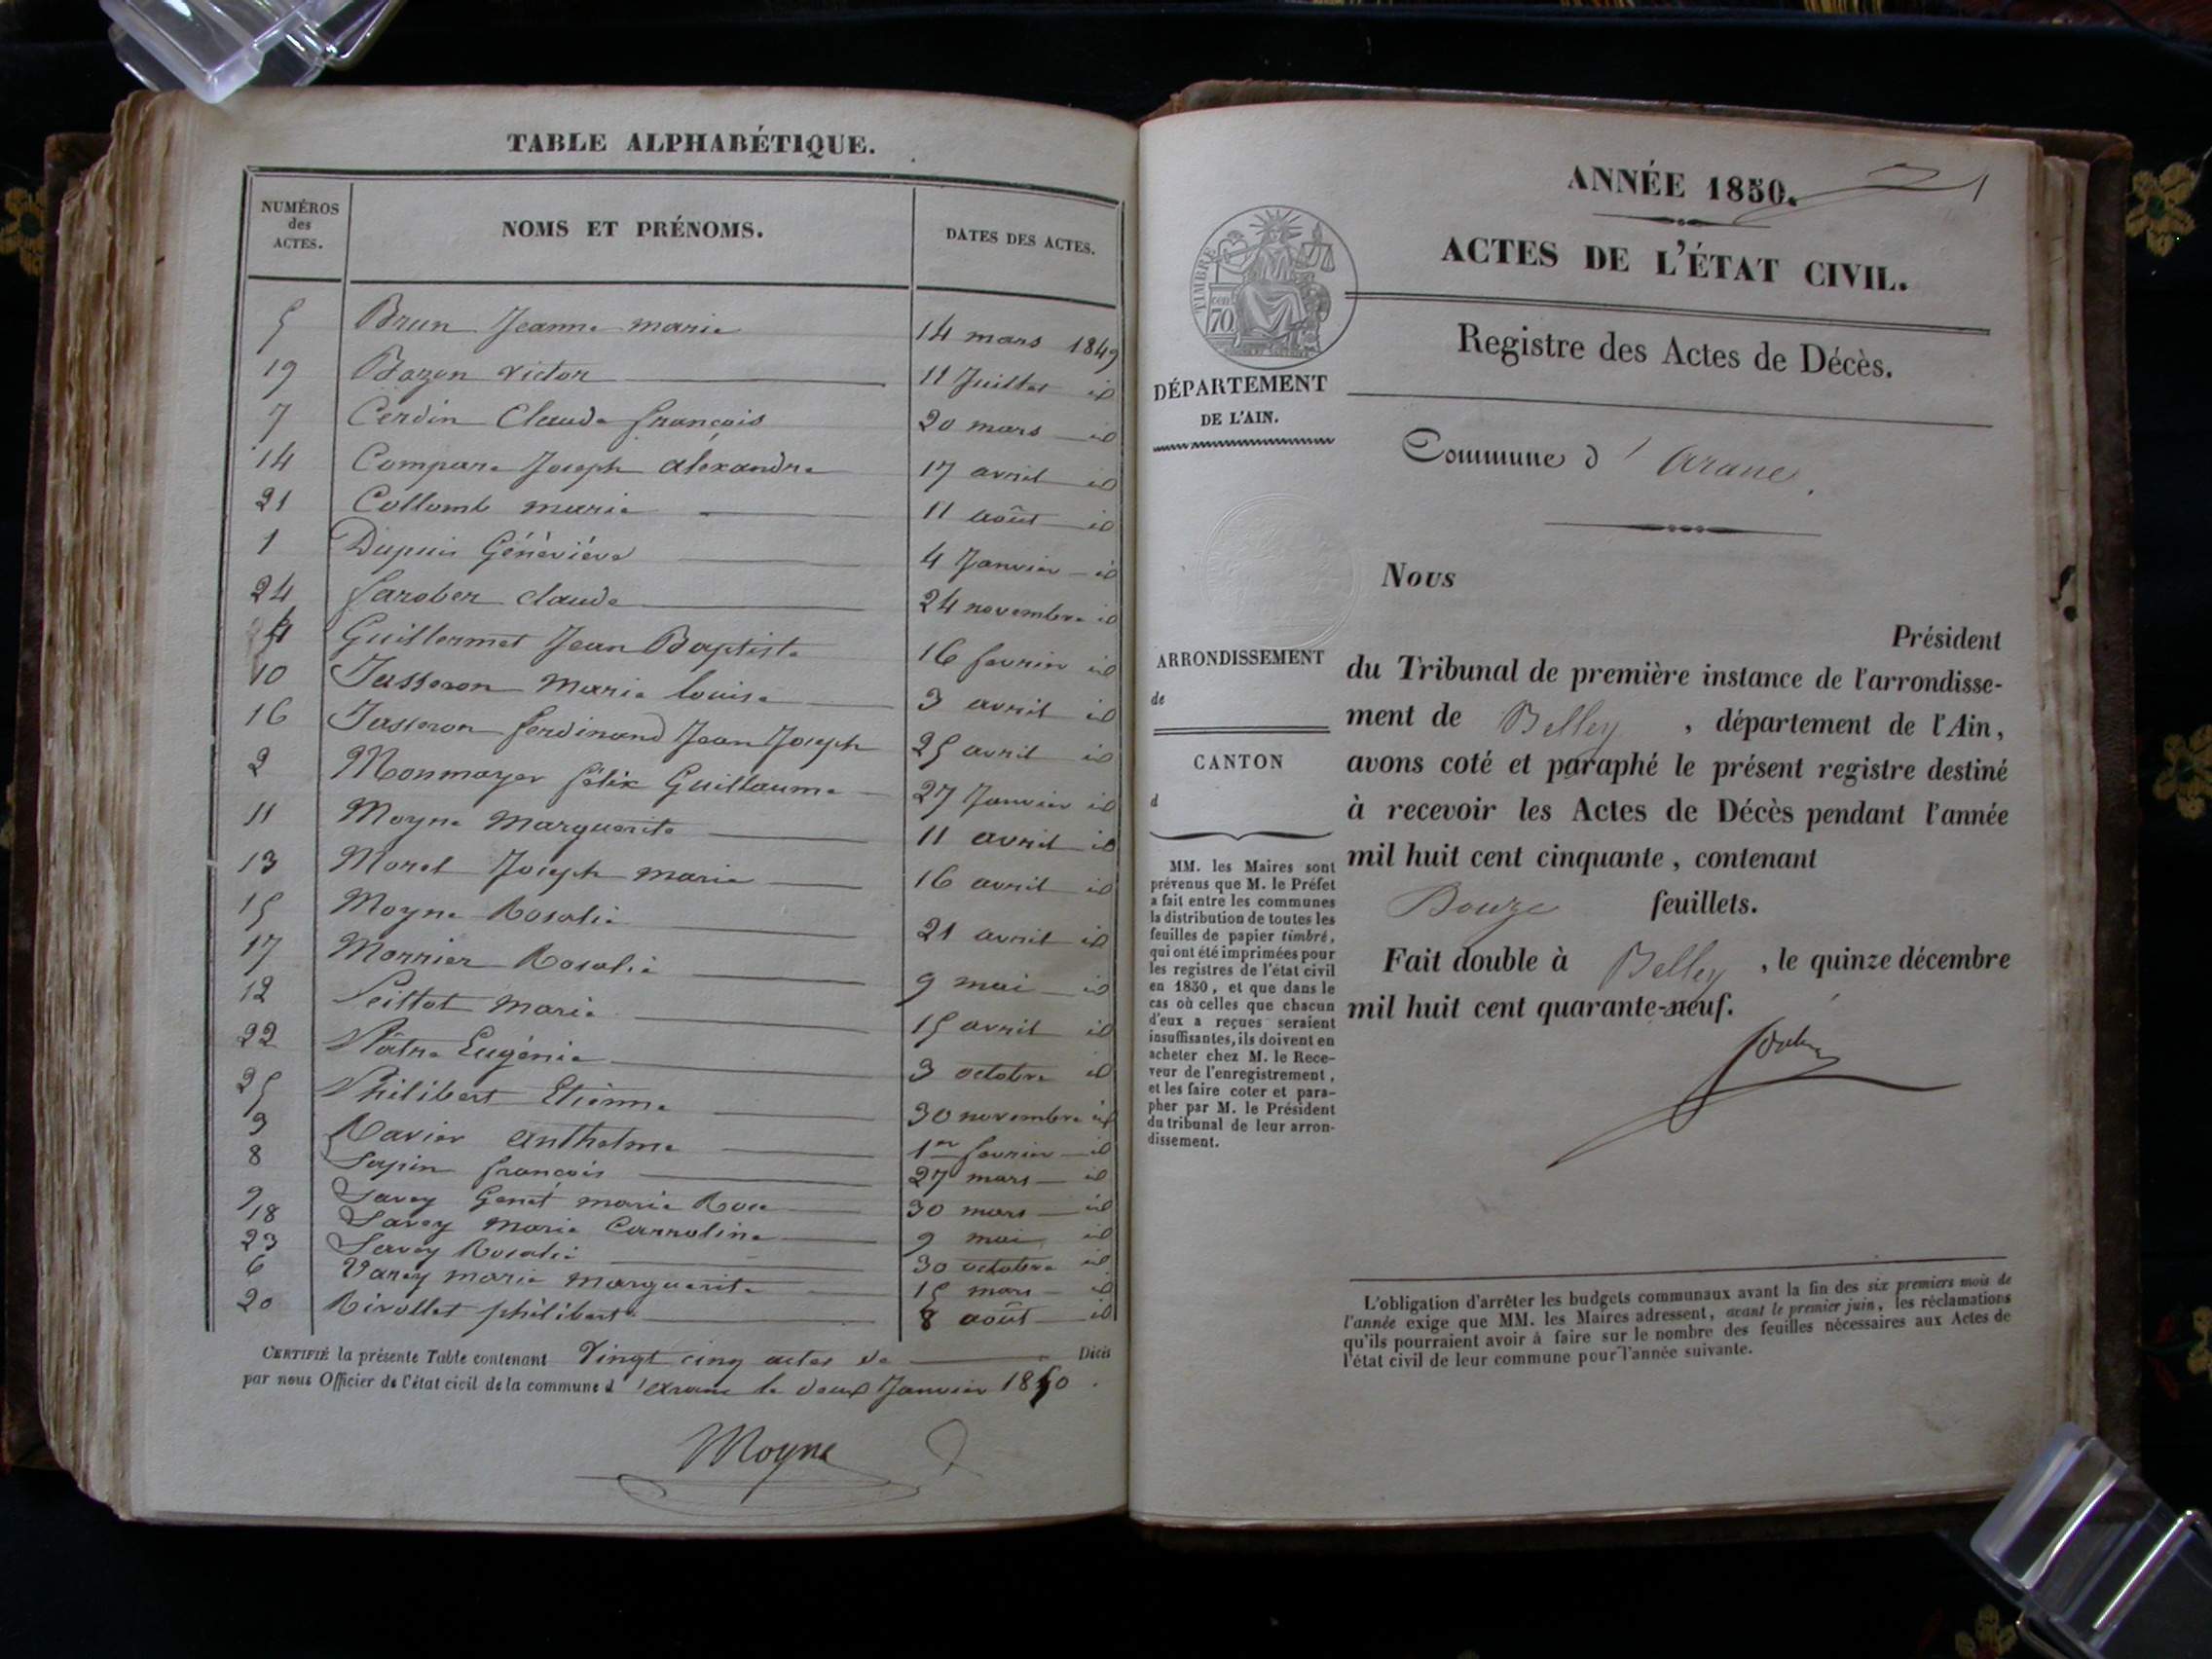 TABLE ALPHABÉTIQUE.
NUMÉROS des ACTES. NOMS ET PRÉNOMS. DATES DES ACTES.
5 Brun Jeanne marie 14 mars 1849
19 Bozon victor 11 Juillet id
7 Cerdin Claude françois 20 mars id
14 Compare Joseph alexandre 17 avril id
21 Collomb marie 11 août id
1 Dupuis Généviéve 4 Janvier id
24 farober claude 24 novembre id
4 Guillermet Jean Baptiste 16 fevrier id
10 Jasseron Marie louise 3 avril id
16 Jasseron ferdinand Jean Joseph 25 avril id
2 Monmayer félix Guillaume 27 Janvier id
11 Moyne Marguerite 11 avril id
13 Morel Joseph marie 16 avril id
15 Moyne Rosalie 21 avril id
17 Monnier Rosalie 9 mai id
12 Peillot Marie 15 avril id
22 Pâtre Eugénie 3 octobre id
25 Philibert Etienne 30 novembre id
3 Ravier anthelme 1er fevrier id
8 Sapin françois 27 mars id
9 Savey Genet marie Rose 30 mars id
18 Savey marie Carroline 9 mai id
23 Savey Rosalie 30 octobre id
6 Varey marie marguerite 15 mars id
20 Rivollet philibert 8 août id
CERTIFIÉ la présente Table contenant Vingt cinq actes de Décès
par nous Officier de l'état civil de la commune d 'arane le deux Janvier 1850.
Moyne
ANNÉE 1850. 1
ACTES DE L'ÉTAT CIVIL.
Registre des Actes de Décès.
TIMBRE
cent
70
DÉPARTEMENT
DE L'AIN.
Commune d' Arane.
ARRONDISSEMENT
de
CANTON
d
MM. les Maires sont
prévenus que M. le Préfet
a fait entre les communes
la distribution de toutes les
feuilles de papier timbré,
qui ont été imprimées pour
les registres de l'état civil
en 1850, et que dans le
cas où celles que chacun
d'eux a reçues seraient
insuffisantes, ils doivent en
acheter chez M. le Rece-
veur de l'enregistrement,
et les faire coter et para-
pher par M. le Président
du tribunal de leur arron-
dissement.
Nous
Président
du Tribunal de première instance de l'arrondisse-
ment de Belley, département de l'Ain,
avons coté et paraphé le présent registre destiné
à recevoir les Actes de Décès pendant l'année
mil huit cent cinquante, contenant
Douze feuillets.
Fait double à Belley, le quinze décembre
mil huit cent quarante-neuf.
L'obligation d'arrêter les budgets communaux avant la fin des six premiers mois de
l'année exige que MM. les Maires adressent, avant le premier juin, les réclamations
qu'ils pourraient avoir à faire sur le nombre des feuilles nécessaires aux Actes de
l'état civil de leur commune pour l'année suivante.